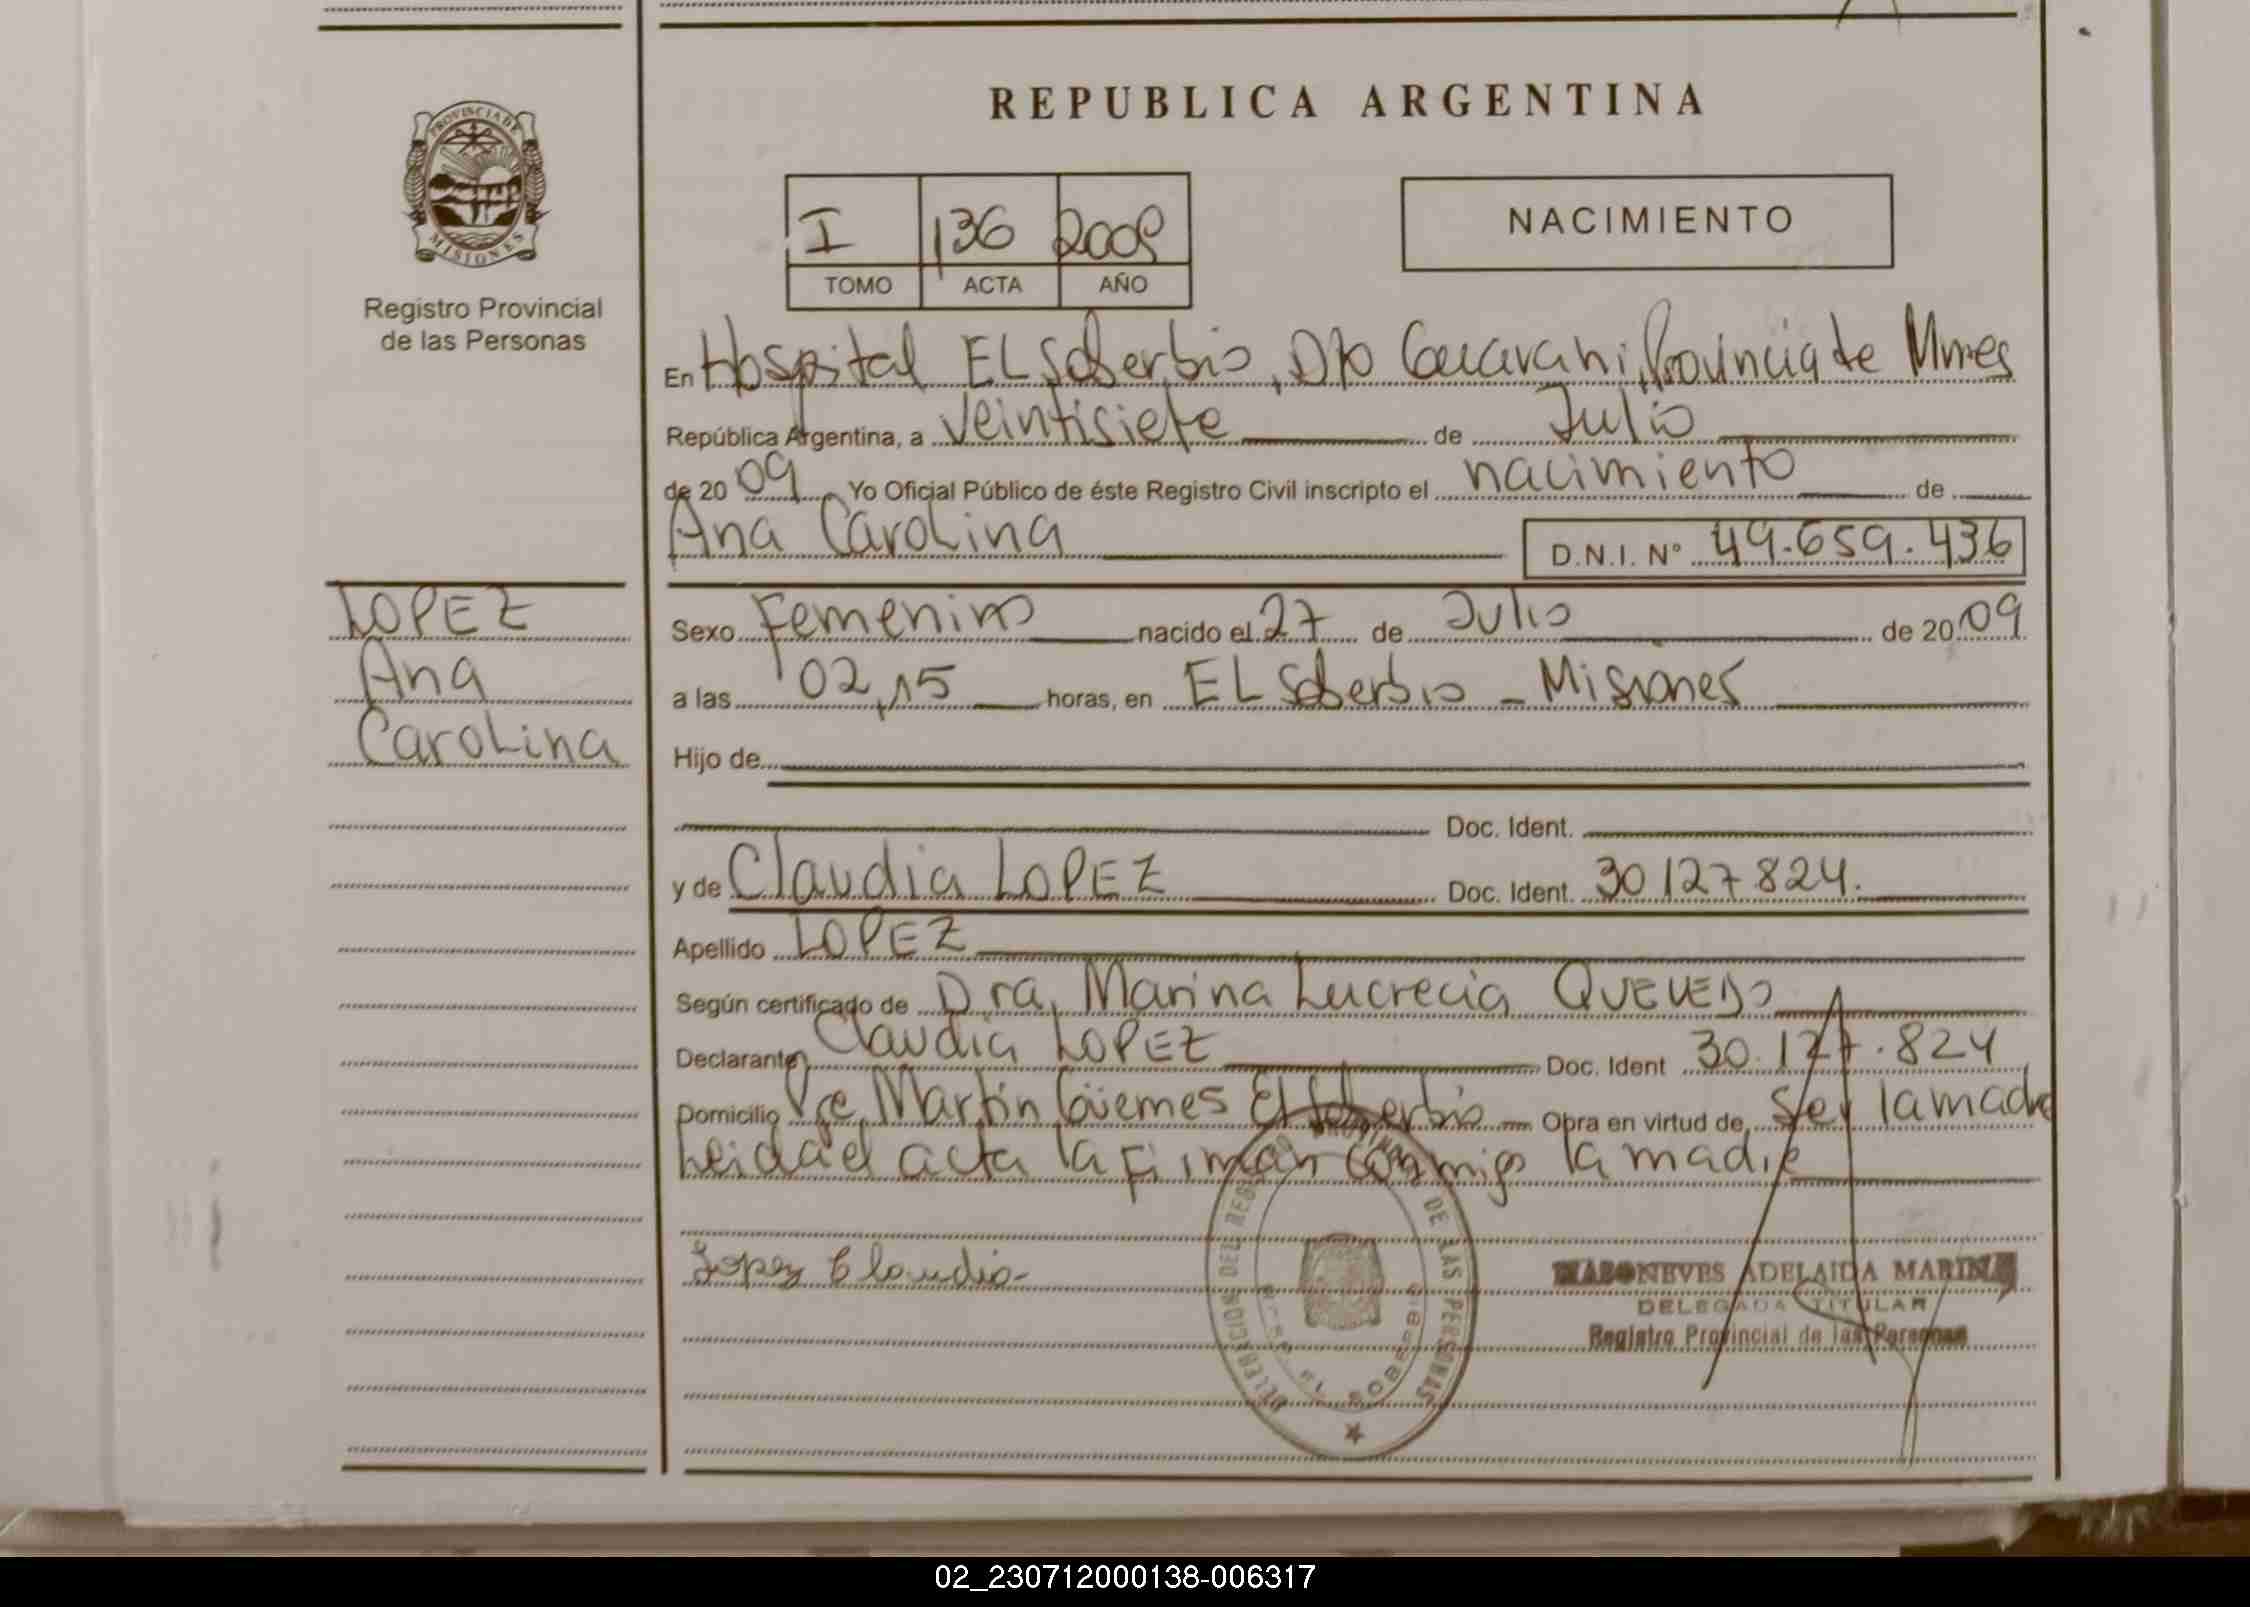 PROVINCIA DE MISIONES
Registro Provincial
de las Personas
REPUBLICA ARGENTINA
I 136 2009
TOMO ACTA AÑO
NACIMIENTO
En Hospital EL Soberbio, Dpto Guarani, Provincia de Mnes
República Argentina, a veintisiete de Julio
de 2009 Yo Oficial Público de éste Registro Civil inscripto el nacimiento de
Ana Carolina D.N.I. Nº 49.659.436
LOPEZ
Ana
Carolina
Sexo Femenino nacido el 27 de Julio de 2009
a las 02,15 horas, en EL Soberbio - Misiones
Hijo de
Doc. Ident.
y de Claudia LOPEZ Doc. Ident. 30127824.
Apellido LOPEZ
Según certificado de Dra, Marina Lucrecia QUEVEDO
Declarante Claudia LOPEZ Doc. Ident 30.127.824
Domicilio Pje, Martín Güemes El Soberbio Obra en virtud de ser la madre
Leida el acta la firman conmigo la madre
Lopez Claudia
DELEGACION DEL REGISTRO PROVINCIAL DE LAS PERSONAS
EL SOBERBIO
NEVES ADELAIDA MARINA
DELEGADA TITULAR
Registro Provincial de las Personas
02_230712000138-006317